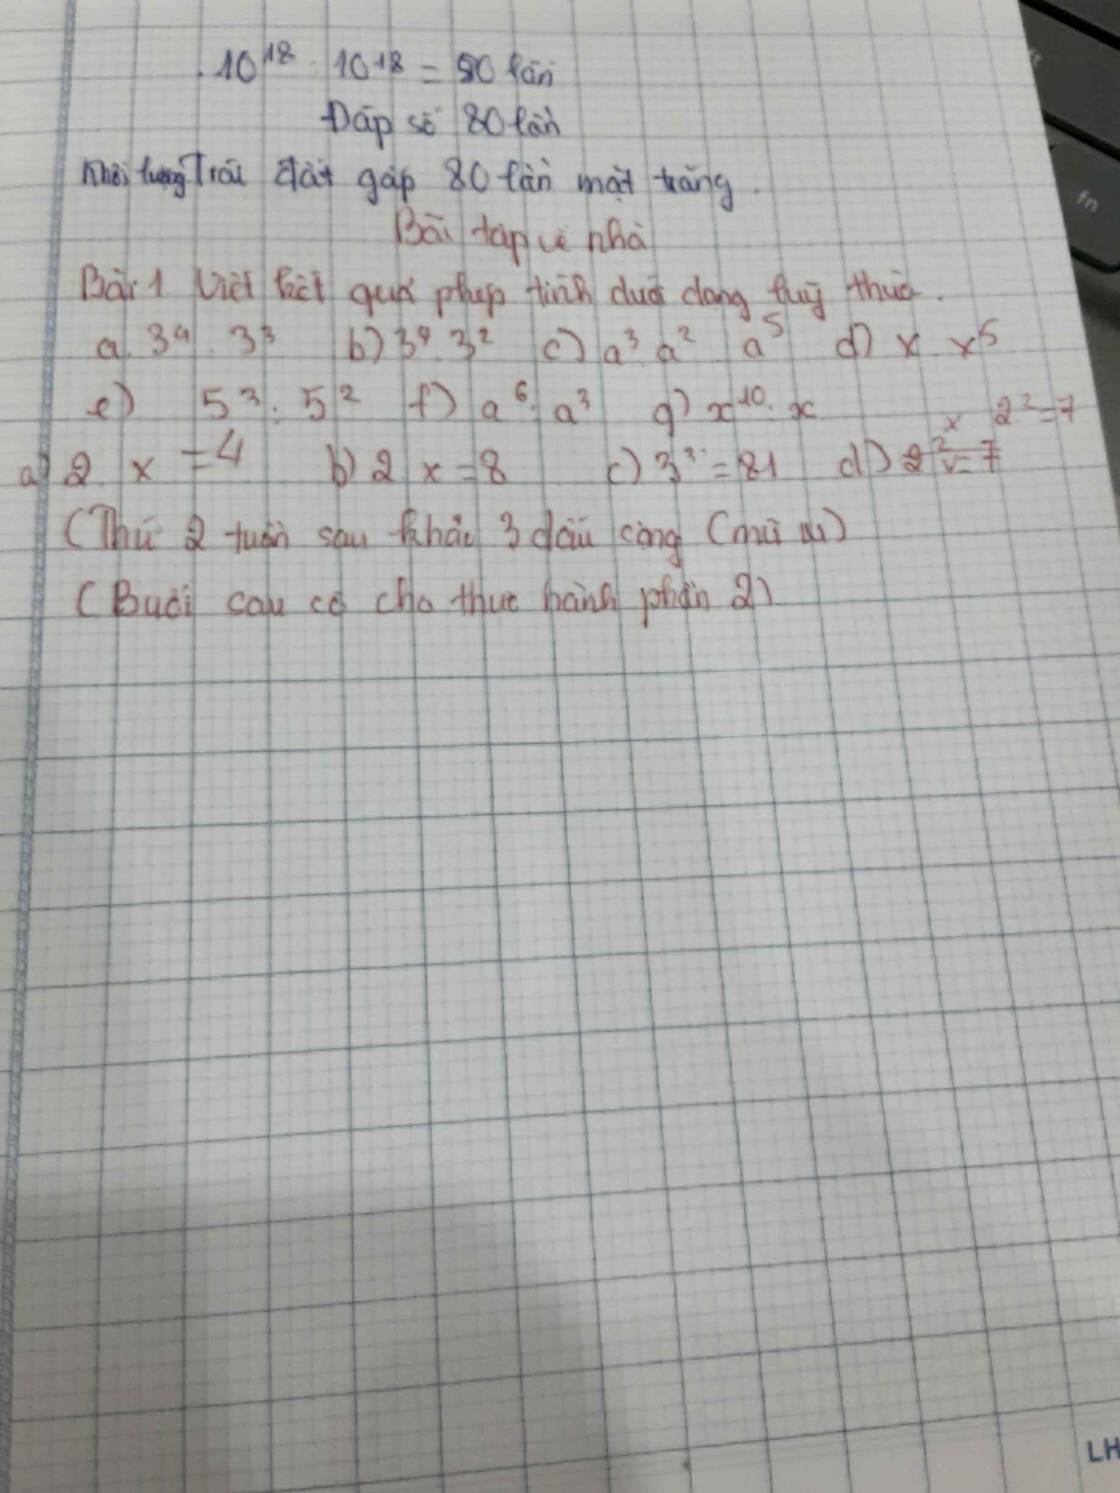 . 10¹⁸ : 10¹⁸ = 80 lần
Đáp số 80 lần
Khối lượng Trái đất gấp 80 lần mặt trăng.
Bài tập về nhà
Bài 1 Viết kết quả phép tính dưới dạng luỹ thừa.
a. 3⁴ . 3³ b) 3⁴ . 3² c) a³ . a² . a⁵ d) x . x⁵
e) 5³ : 5² f) a⁶ : a³ g) x¹⁰ . x
x . 2² = 7
a) 2 x = 4 b) 2 x = 8 c) 3 = 81 d)
(Thứ 2 tuần sau khảo 3 dấu cộng (mũ)
(Buổi sau cô cho thực hành phần 2)
LH